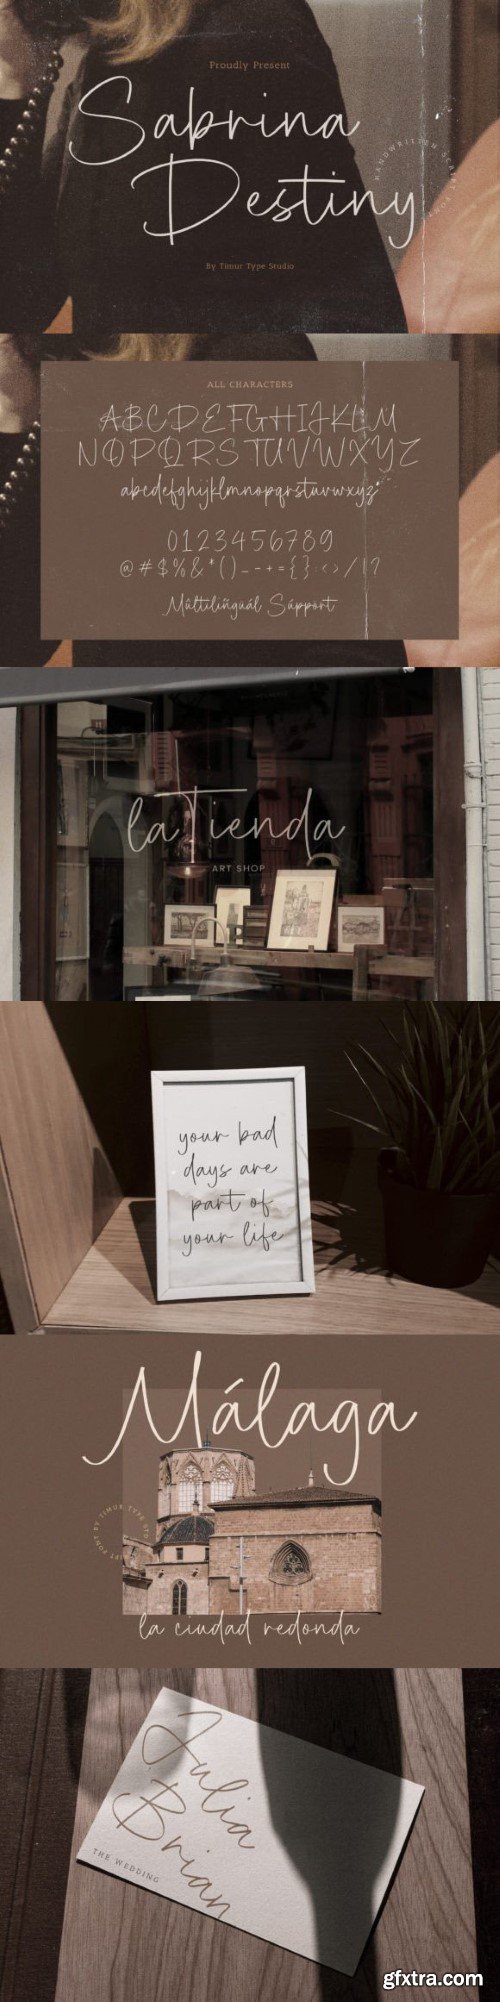 Proudly Present
Sabrina
Destiny
HANDWRITTEN SCRIPT FONT
By Timur Type Studio
ALL CHARACTERS
ABCDEFGHIJKLM
NOPQRSTUVWXYZ
abcdefghijklmnopqrstuvwxyz
0123456789
@#$%&*()_-+={}:<>/!?
Múltilíñguál Súpport
la Tienda
ART SHOP
your bad
days are
part of
your life
Málaga
BY TIMUR TYPE
la ciudad redonda
Julia
Brian
THE WEDDING
gfxtra.com